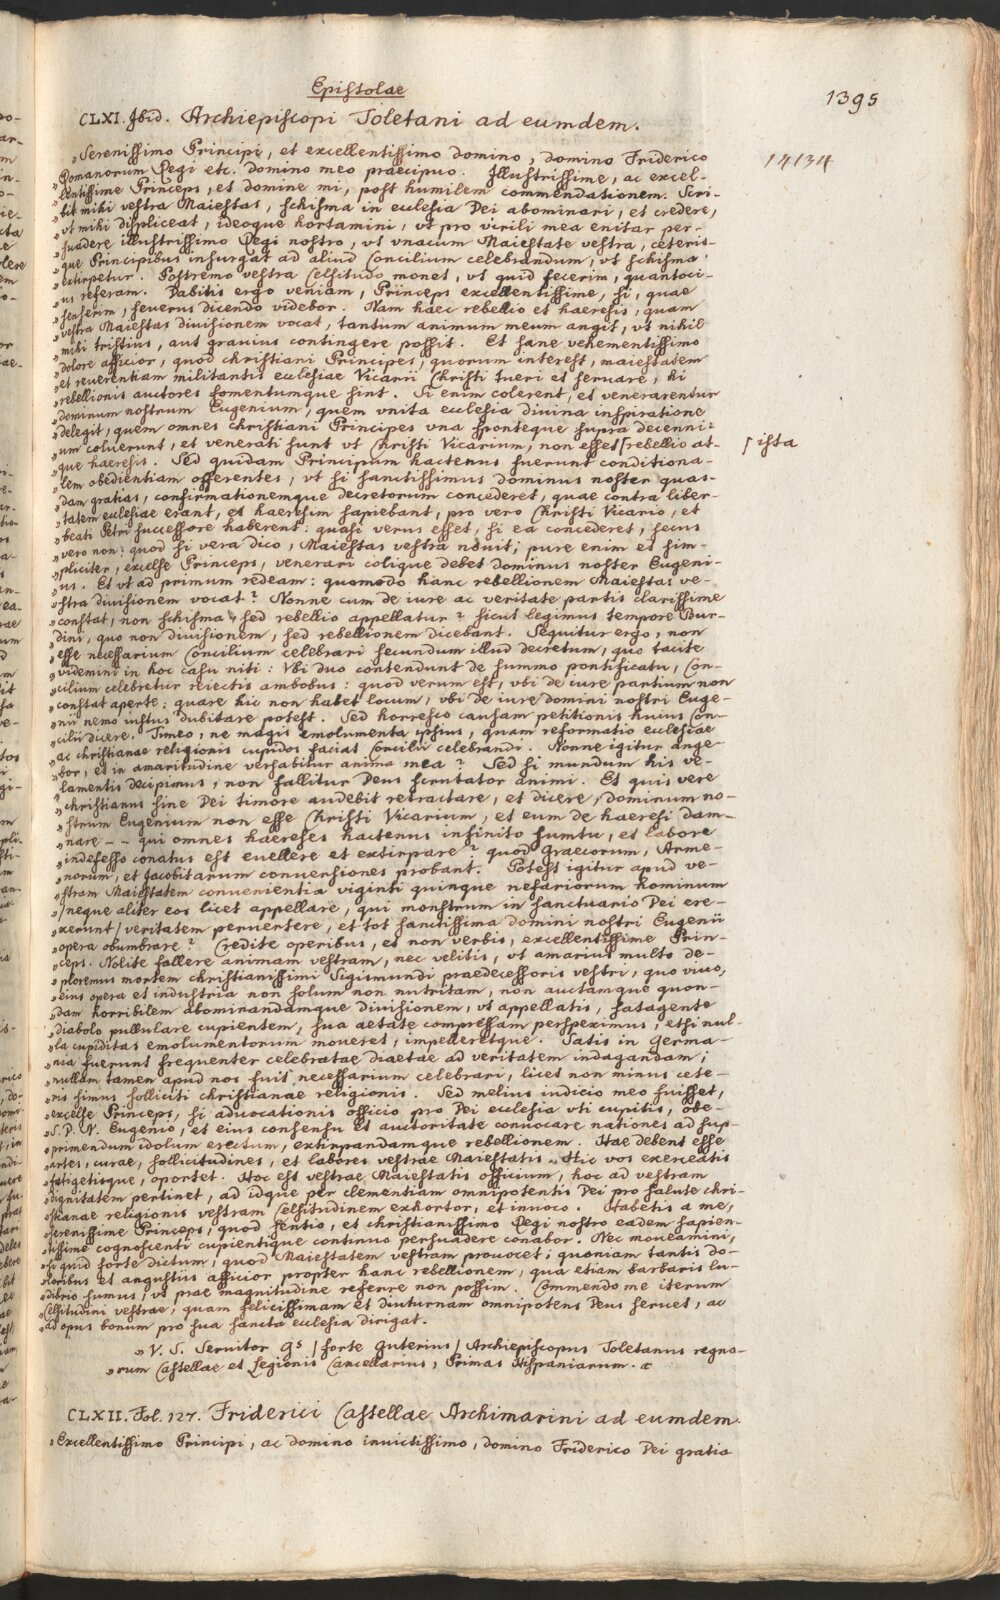 Epistolae
1395
CLXI. Ibid. Archiepiscopi Toletani ad eumdem.
„Serenissimo Principi, et excellentissimo domino, domino Friderico
14134
„Romanorum Regi etc. domino meo praecipuo. Illustrissime, ac excel-
„lentissime Princeps, et domine mi, post humilem commendationem. Scri-
„bit mihi vestra Maiestas, schisma in ecclesia Dei abominari, et credere,
„vt mihi displiceat, ideoque hortamini, vt pro virili mea enitar per-
„suadere illustrissimo Regi nostro, vt vnacum Maiestate vestra, ceteris-
„que Principibus insurgat ad aliud Concilium celebrandum, vt schisma
„extirpetur. Postremo vestra Celsitudo monet, vt quid fecerim, quantoci-
„us referam. Dabitis ergo veniam, Princeps excellentissime, si, quae
„senserim, seuerus dicendo videbor. Nam haec rebellio et haeresis, quam
„vestra Maiestas diuisionem vocat, tantum animum meum angit, vt nihil
„mihi tristius, aut grauius contingere possit. Et sane vehementissimo
„dolore afficior, quod christiani Principes, quorum interest, maiestatem
„et reuerentiam militantis ecclesiae Vicarii Christi tueri et seruare, hi
„rebellionis auctores fomentumque sint. Si enim colerent, et venerarentur
„dominum nostrum Eugenium, quem vnita ecclesia diuina inspiratione
„delegit, quem omnes christiani Principes vna sponteque supra decenni-
„um coluerunt, et venerati sunt vt Christi Vicarium, non esset ⌈rebellio at-
⌈ ista
„que haeresis. Sed quidam Principum hactenus fuerunt conditiona-
„lem obedientiam offerentes, vt si sanctissimus dominus noster quas-
„dam gratias, confirmationemque decretorum concederet, quae contra liber-
„tatem ecclesiae erant, et haeresim sapiebant, pro vero Christi Vicario, et
„beati Petri successore haberent: quasi verus esset, si ea concederet, secus
„vero non: quod si vera dico, Maiestas vestra nouit; pure enim et sim-
„pliciter, excelse Princeps, venerari colique debet dominus noster Eugeni-
„us. Et vt ad primum redeam: quomodo hanc rebellionem Maiestas ve-
„stra diuisionem vocat? Nonne cum de iure ac veritate partis clarissime
„constat, non schisma, sed rebellio appellatur? sicut legimus tempore Bur-
„dini, quo non diuisionem, sed rebellionem dicebant. Sequitur ergo, non
„esse necessarium Concilium celebrari secundum illud decretum, quo tacite
„videmini in hoc casu niti: Vbi duo contendunt de summo pontificatu, Con-
„cilium celebretur reiectis ambobus: quod verum est, vbi de iure partium non
„constat aperte: quare hic non habet locum, vbi de iure domini nostri Euge-
„nii nemo iustus dubitare potest. Sed horresco causam petitionis huius Con-
„cilii dicere. Timeo, ne magis emolumenta ipsius, quam reformatio ecclesiae
„ac christianae religionis cupidos faciat Concilii celebrandi. Nonne igitur ange-
„bor, et in amaritudine versabitur anima mea? Sed si mundum his ve-
„lamentis decipimus, non fallitur Deus scrutator animi. Et quis vere
„christianus sine Dei timore audebit retractare, et dicere, dominum no-
„strum Eugenium non esse Christi Vicarium, et eum de haeresi dam-
„nare -- qui omnes haereses hactenus infinito sumtu, et labore
„indefesso conatus est euellere et extirpare? quod Graecorum, Arme-
„norum, et Jacobitarum conuersiones probant. Potest igitur apud ve-
„stram Maiestatem conuenientia viginti quinque nefariorum hominum
„/neque aliter eos licet appellare, qui monstrum in sanctuario Dei ere-
„xerunt/ veritatem peruertere, et tot sanctissima domini nostri Eugenii
„opera obumbrare? Credite operibus, et non verbis, excellentissime Prin-
„ceps. Nolite fallere animam vestram, nec velitis, vt amarius multo de-
„ploremus mortem christianissimi Sigismundi praedecessoris vestri, quo viuo,
„eius opera et industria non solum non nutritam, non auctamque quon-
„dam horribilem abominandamque diuisionem, vt appellatis, satagente
„diabolo pullulare cupientem, sua aetate compressam perspeximus; etsi nul-
„la cupiditas emolumentorum moueret, impelleretque. Satis in Germa-
„nia fuerunt frequenter celebratae diaetae ad veritatem indagandam;
„nullam tamen apud nos fuit necessarium celebrari, licet non minus cete-
„ris simus solliciti christianae religionis. Sed melius iudicio meo fuisset,
„excelse Princeps, si aduocationis officio pro Dei ecclesia vti cupitis, obe-
„S. P. N. Eugenio, et eius consensu et auctoritate conuocare nationes ad sup-
„primendum idolum erectum, extirpandamque rebellionem. Hae debent esse
„artes, curae, sollicitudines, et labores vestrae Maiestatis. Hic vos exerceatis
„fatigetisque, oportet. Hoc est vestrae Maiestatis officium, hoc ad vestram
„dignitatem pertinet, ad idque per clementiam omnipotentis Dei pro salute chri-
„stianae religionis vestram Celsitudinem exhortor, et inuoco. Habetis a me,
„serenissime Princeps, quod sentio, et christianissimo Regi nostro eadem sapien-
„tissime cognoscenti cupientique continuo persuadere conabor. Nec moueamini,
„si quid forte dictum, quod Maiestatem vestram prouocet; quoniam tantis do-
„loribus et angustiis afficior propter hanc rebellionem, qua etiam barbaris lu-
„dibrio sumus, vt prae magnitudine referre non possim. Commendo me iterum
„Celsitudini vestrae, quam felicissimam et diuturnam omnipotens Deus seruet, ac
„ad opus bonum pro sua sancta ecclesia dirigat.
„V. S. Seruitor Gs /forte Guterius/ Archiepiscopus Toletanus regno-
„rum Castellae et Legionis Cancellarius, Primas Hispaniarum.
CLXII. Fol. 127. Friderici Castellae Archimarini ad eumdem.
„Excellentissimo Principi, ac domino inuictissimo, domino Friderico Dei gratia